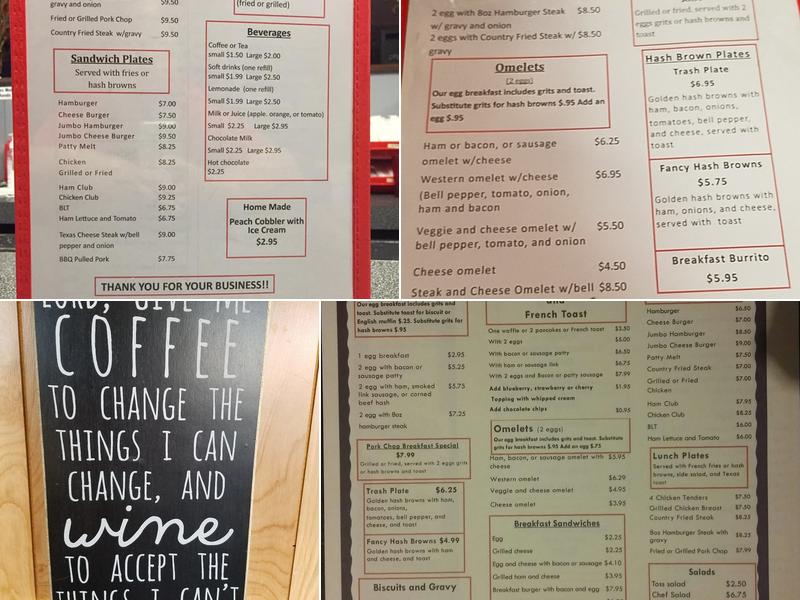 gravy and onion
$9.50
Fried or Grilled Pork Chop $9.50
Country Fried Steak w/gravy $9.50
Sandwich Plates
Served with fries or
hash browns
Hamburger $7.00
Cheese Burger $7.50
Jumbo Hamburger $9.00
Jumbo Cheese Burger $9.50
Patty Melt $8.25
Chicken $8.25
Grilled or Fried
Ham Club $9.00
Chicken Club $9.25
BLT $6.75
Ham Lettuce and Tomato $6.75
Texas Cheese Steak w/bell $9.00
pepper and onion
BBQ Pulled Pork $7.75
(fried or grilled)
Beverages
Coffee or Tea
small $1.50 Large $2.00
Soft drinks (one refill)
small $1.99 Large $2.50
Lemonade (one refill)
Small $1.99 Large $2.50
Milk or Juice (apple. orange, or tomato)
Small $2.25 Large $2.95
Chocolate Milk
Small $2.25 Large $2.95
Hot chocolate
$2.25
Home Made
Peach Cobbler with
Ice Cream
$2.95
THANK YOU FOR YOUR BUSINESS!!
2 egg with 8oz Hamburger Steak $8.50
w/ gravy and onion
2 eggs with Country Fried Steak w/ $8.50
gravy
Omelets
(2 eggs)
Our egg breakfast includes grits and toast.
Substitute grits for hash browns $.95 Add an
egg $.95
Ham or bacon, or sausage $6.25
omelet w/cheese
Western omelet w/cheese $6.95
(Bell pepper, tomato, onion,
ham and bacon
Veggie and cheese omelet w/ $5.50
bell pepper, tomato, and onion
Cheese omelet $4.50
Steak and Cheese Omelet w/bell $8.50
Grilled or fried, served with 2
eggs grits or hash browns and
toast
Hash Brown Plates
Trash Plate
$6.95
Golden hash browns with
ham, bacon, onions,
tomatoes, bell pepper,
and cheese, served with
toast
Fancy Hash Browns
$5.75
Golden hash browns with
ham, onions, and cheese,
served with toast
Breakfast Burrito
$5.95
LORD, GIVE ME
COFFEE
TO CHANGE THE
THINGS I CAN
CHANGE, AND
wine
TO ACCEPT THE
THINGS I CAN'T
Our egg breakfast includes grits and
toast. Substitute toast for biscuit or
English muffin $.25. Substitute grits for
hash browns $.95
1 egg breakfast $2.95
2 egg with bacon or $5.25
sausage patty
2 egg with ham, smoked $5.75
link sausage, or corned
beef hash
2 egg with 8oz $7.25
hamburger steak
Pork Chop Breakfast Special
$7.99
Grilled or fried, served with 2 eggs grits
or hash browns and toast
Trash Plate $6.25
Golden hash browns with ham,
bacon, onions,
tomatoes, bell pepper, and
cheese, and toast
Fancy Hash Browns $4.99
Golden hash browns with ham
and cheese, and toast
Biscuits and Gravy
and
French Toast
One waffle or 2 pancakes or French toast $3.50
With 2 eggs $5.00
With bacon or sausage patty $6.50
With ham or sausage link $6.75
With 2 eggs and Bacon or patty sausage $7.99
Add blueberry, strawberry or cherry $1.95
Topping with whipped cream
Add chocolate chips $0.95
Omelets (2 eggs)
Our egg breakfast includes grits and toast. Substitute
grits for hash browns $.95 Add an egg $.75
Ham, bacon, or sausage omelet with $5.95
cheese
Western omelet $6.29
Veggie and cheese omelet $4.95
Cheese omelet $3.95
Breakfast Sandwiches
Egg $2.25
Grilled cheese $2.25
Egg and cheese with bacon or sausage $4.10
Grilled ham and cheese $3.95
Breakfast burger with bacon and egg $7.95
Hamburger $6.50
Cheese Burger $7.00
Jumbo Hamburger $8.50
Jumbo Cheese Burger $9.00
Patty Melt $7.50
Country Fried Steak $7.00
Grilled or Fried $7.00
Chicken
Ham Club $7.95
Chicken Club $8.25
BLT $6.00
Ham Lettuce and Tomato $6.00
Lunch Plates
Served with French fries or hash
browns, side salad, and Texas
toast
4 Chicken Tenders $7.50
Grilled Chicken Breast $7.50
Country Fried Steak $8.25
8oz Hamburger Steak with $8.25
gravy
Fried or Grilled Pork Chop $7.99
Salads
Toss salad $2.50
Chef Salad $6.75